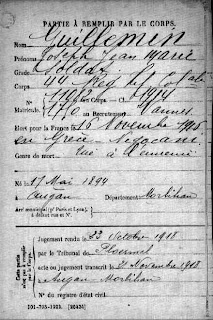 PARTIE À REMPLIR PAR LE CORPS.
Nom Guillemin
Prénoms Joseph Jean Marie
Grade Soldat
Corps
N° 11072 au Corps. — Cl. 1914
Matricule. 110 au Recrutement Vannes
Mort pour la France le 26 Novembre 1915
en Grèce
Genre de mort tué à l'ennemi
Né le 17 Mai 1894
à Augan Département Morbihan
Arr¹ municipal (pʳ Paris et Lyon),
à défaut rue et N°.
Cette partie
n'est pas à remplir
par le Corps.
Jugement rendu le 23 Octobre 1918
par le Tribunal de Ploermel
acte ou jugement transcrit le 21 Novembre 1918
à Augan Morbihan
N° du registre d'état civil